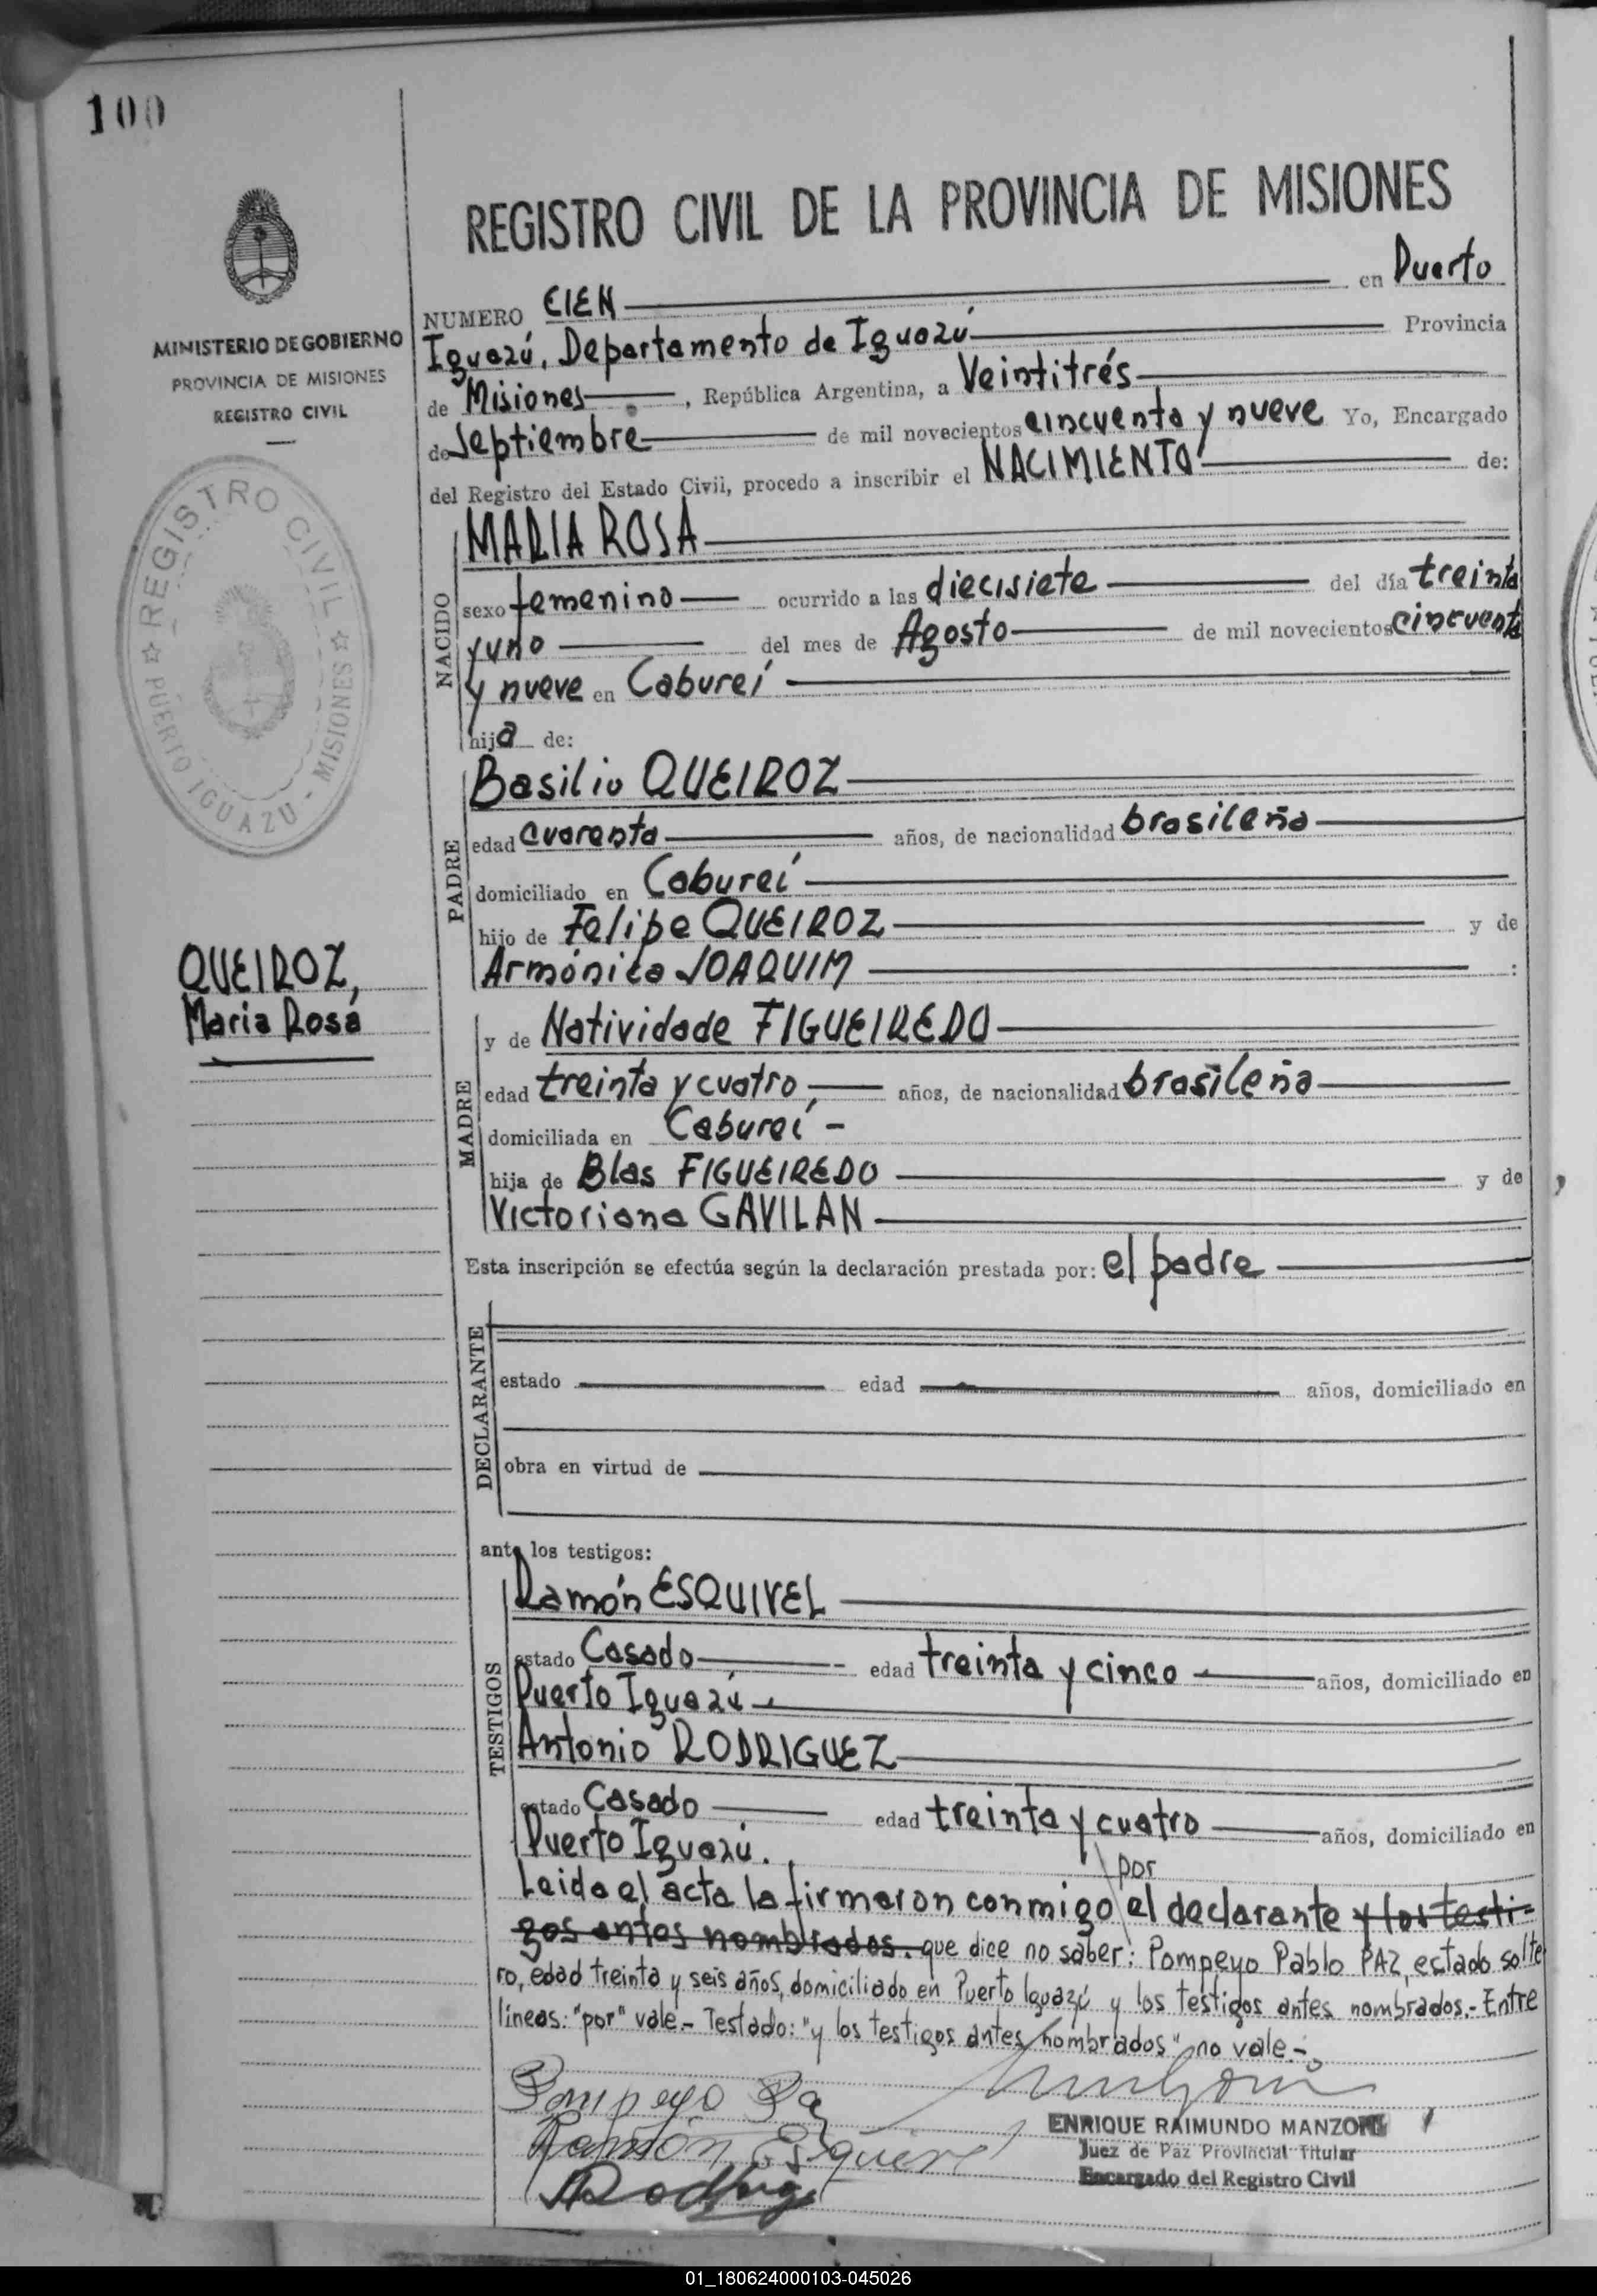 100
MINISTERIO DE GOBIERNO
PROVINCIA DE MISIONES
REGISTRO CIVIL
REGISTRO CIVIL
PUERTO IGUAZU - MISIONES
QUEIROZ,
Maria Rosa
REGISTRO CIVIL DE LA PROVINCIA DE MISIONES
NUMERO CIEN en Puerto
Iguazú, Departamento de Iguazú Provincia
de Misiones, República Argentina, a Veintitrés
de Septiembre de mil novecientos cincuenta y nueve Yo, Encargado
del Registro del Estado Civil, procedo a inscribir el NACIMIENTO de:
NACIDO
MARIA ROSA
sexo femenino ocurrido a las diecisiete del día treinta
y uno del mes de Agosto de mil novecientos cincuenta
y nueve en Cabureí
hija de:
PADRE
Basilio QUEIROZ
edad cuarenta años, de nacionalidad brasileña
domiciliado en Cabureí
hijo de Felipe QUEIROZ y de
Armónica JOAQUIM :
MADRE
y de Natividade FIGUEIREDO
edad treinta y cuatro, años, de nacionalidad brasileña
domiciliada en Cabureí -
hija de Blas FIGUEIREDO y de
Victoriana GAVILAN
Esta inscripción se efectúa según la declaración prestada por: el padre
DECLARANTE
estado edad años, domiciliado en
obra en virtud de
ante los testigos:
TESTIGOS
Ramón ESQUIVEL
estado Casado edad treinta y cinco años, domiciliado en
Puerto Iguazú
Antonio RODRIGUEZ
estado Casado edad treinta y cuatro años, domiciliado en
Puerto Iguazú.
por
Leida el acta la firmaron conmigo el declarante y los testi-
gos antes nombrados. que dice no saber: Pompeyo Pablo PAZ, estado solte
ro, edad treinta y seis años, domiciliado en Puerto Iguazú y los testigos antes nombrados.- Entre
líneas: "por" vale.- Testado: "y los testigos antes nombrados" no vale.-
Pompeyo Paz
Ramón Esquivel
ARodrigz
ENRIQUE RAIMUNDO MANZONI
Juez de Paz Provincial Titular
Encargado del Registro Civil
01_180624000103-045026